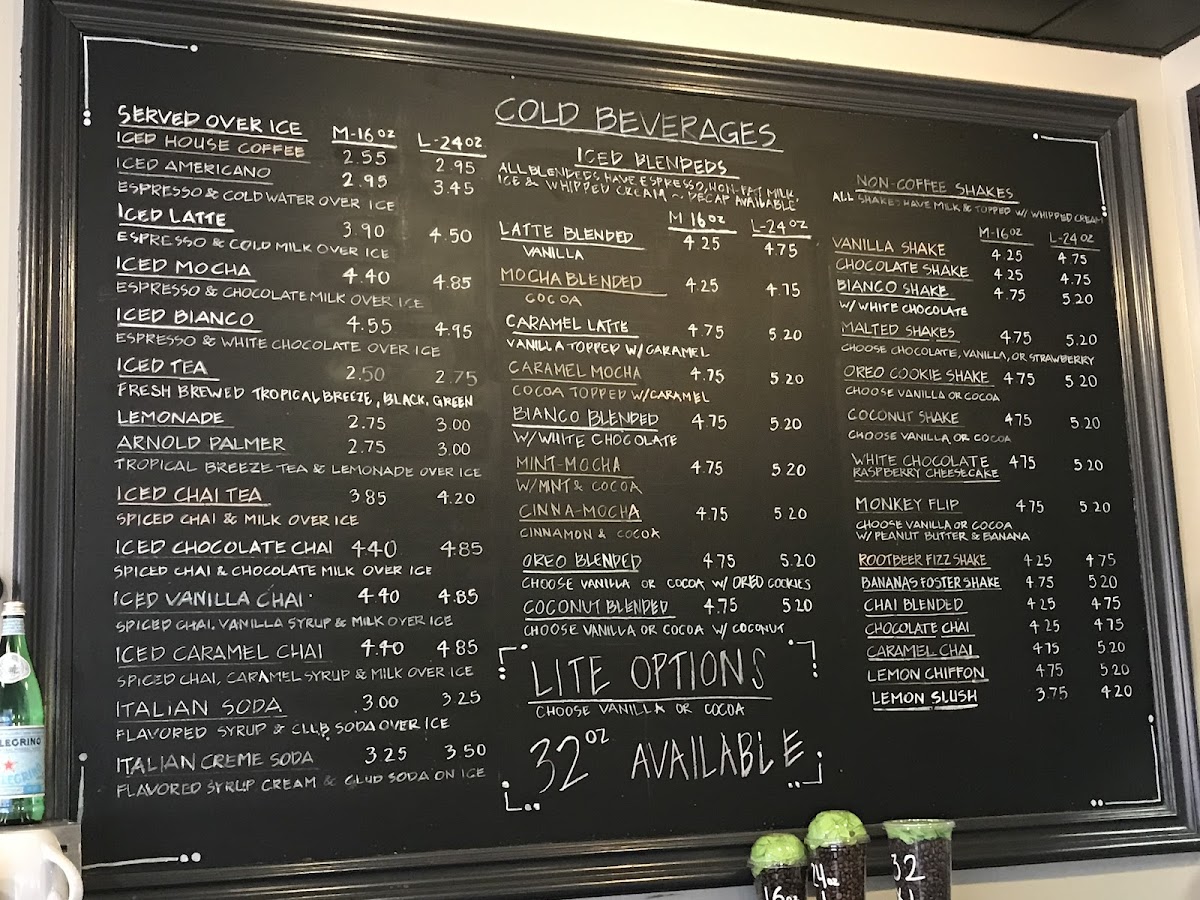 COLD BEVERAGES
SERVED OVER ICE M-16 OZ L-24 OZ
ICED HOUSE COFFEE 2.55 2.95
ICED AMERICANO 2.95 3.45
ESPRESSO & COLD WATER OVER ICE
ICED LATTE 3.90 4.50
ESPRESSO & COLD MILK OVER ICE
ICED MOCHA 4.40 4.85
ESPRESSO & CHOCOLATE MILK OVER ICE
ICED BIANCO 4.55 4.95
ESPRESSO & WHITE CHOCOLATE OVER ICE
ICED TEA 2.50 2.75
FRESH BREWED TROPICAL BREEZE, BLACK, GREEN
LEMONADE 2.75 3.00
ARNOLD PALMER 2.75 3.00
TROPICAL BREEZE TEA & LEMONADE OVER ICE
ICED CHAI TEA 3.85 4.20
SPICED CHAI & MILK OVER ICE
ICED CHOCOLATE CHAI 4.40 4.85
SPICED CHAI & CHOCOLATE MILK OVER ICE
ICED VANILLA CHAI 4.40 4.85
SPICED CHAI, VANILLA SYRUP & MILK OVER ICE
ICED CARAMEL CHAI 4.40 4.85
SPICED CHAI, CARAMEL SYRUP & MILK OVER ICE
ITALIAN SODA 3.00 3.25
FLAVORED SYRUP & CLUB SODA OVER ICE
ITALIAN CREME SODA 3.25 3.50
FLAVORED SYRUP CREAM & CLUB SODA ON ICE
ICED BLENDEDS
ALL BLENDEDS HAVE ESPRESSO, NON-FAT MILK,
ICE & WHIPPED CREAM ~ DECAF AVAILABLE
M 16 OZ L-24 OZ
LATTE BLENDED 4.25 4.75
VANILLA
MOCHA BLENDED 4.25 4.75
COCOA
CARAMEL LATTE 4.75 5.20
VANILLA TOPPED W/ CARAMEL
CARAMEL MOCHA 4.75 5 20
COCOA TOPPED W/CARAMEL
BIANCO BLENDED 4.75 5.20
W/WHITE CHOCOLATE
MINT-MOCHA 4.75 5.20
W/MINT & COCOA
CINNA-MOCHA 4.75 5 20
CINNAMON & COCOA
OREO BLENDED 4.75 5.20
CHOOSE VANILLA OR COCOA W/ OREO COOKIES
COCONUT BLENDED 4.75 5 20
CHOOSE VANILLA OR COCOA W/ COCONUT
LITE OPTIONS
CHOOSE VANILLA OR COCOA
32 OZ AVAILABLE
NON-COFFEE SHAKES
ALL SHAKES HAVE MILK & TOPPED W/ WHIPPED CREAM
M-16 OZ L-24 OZ
VANILLA SHAKE 4.25 4.75
CHOCOLATE SHAKE 4.25 4.75
BIANCO SHAKE 4.75 5.20
W/WHITE CHOCOLATE
MALTED SHAKES 4.75 5.20
CHOOSE CHOCOLATE, VANILLA, OR STRAWBERRY
OREO COOKIE SHAKE 4 75 5 20
CHOOSE VANILLA OR COCOA
COCONUT SHAKE 4.75 5 20
CHOOSE VANILLA OR COCOA
WHITE CHOCOLATE 4.75 5 20
RASPBERRY CHEESECAKE
MONKEY FLIP 4.75 5.20
CHOOSE VANILLA OR COCOA
W/ PEANUT BUTTER & BANANA
ROOTBEER FIZZ SHAKE 4 25 4.75
BANANAS FOSTER SHAKE 4.75 5.20
CHAI BLENDED 4 25 4.75
CHOCOLATE CHAI 4 25 4.75
CARAMEL CHAI 4.75 5.20
LEMON CHIFFON 4.75 5.20
LEMON SLUSH 3.75 4.20
16oz
24oz
32